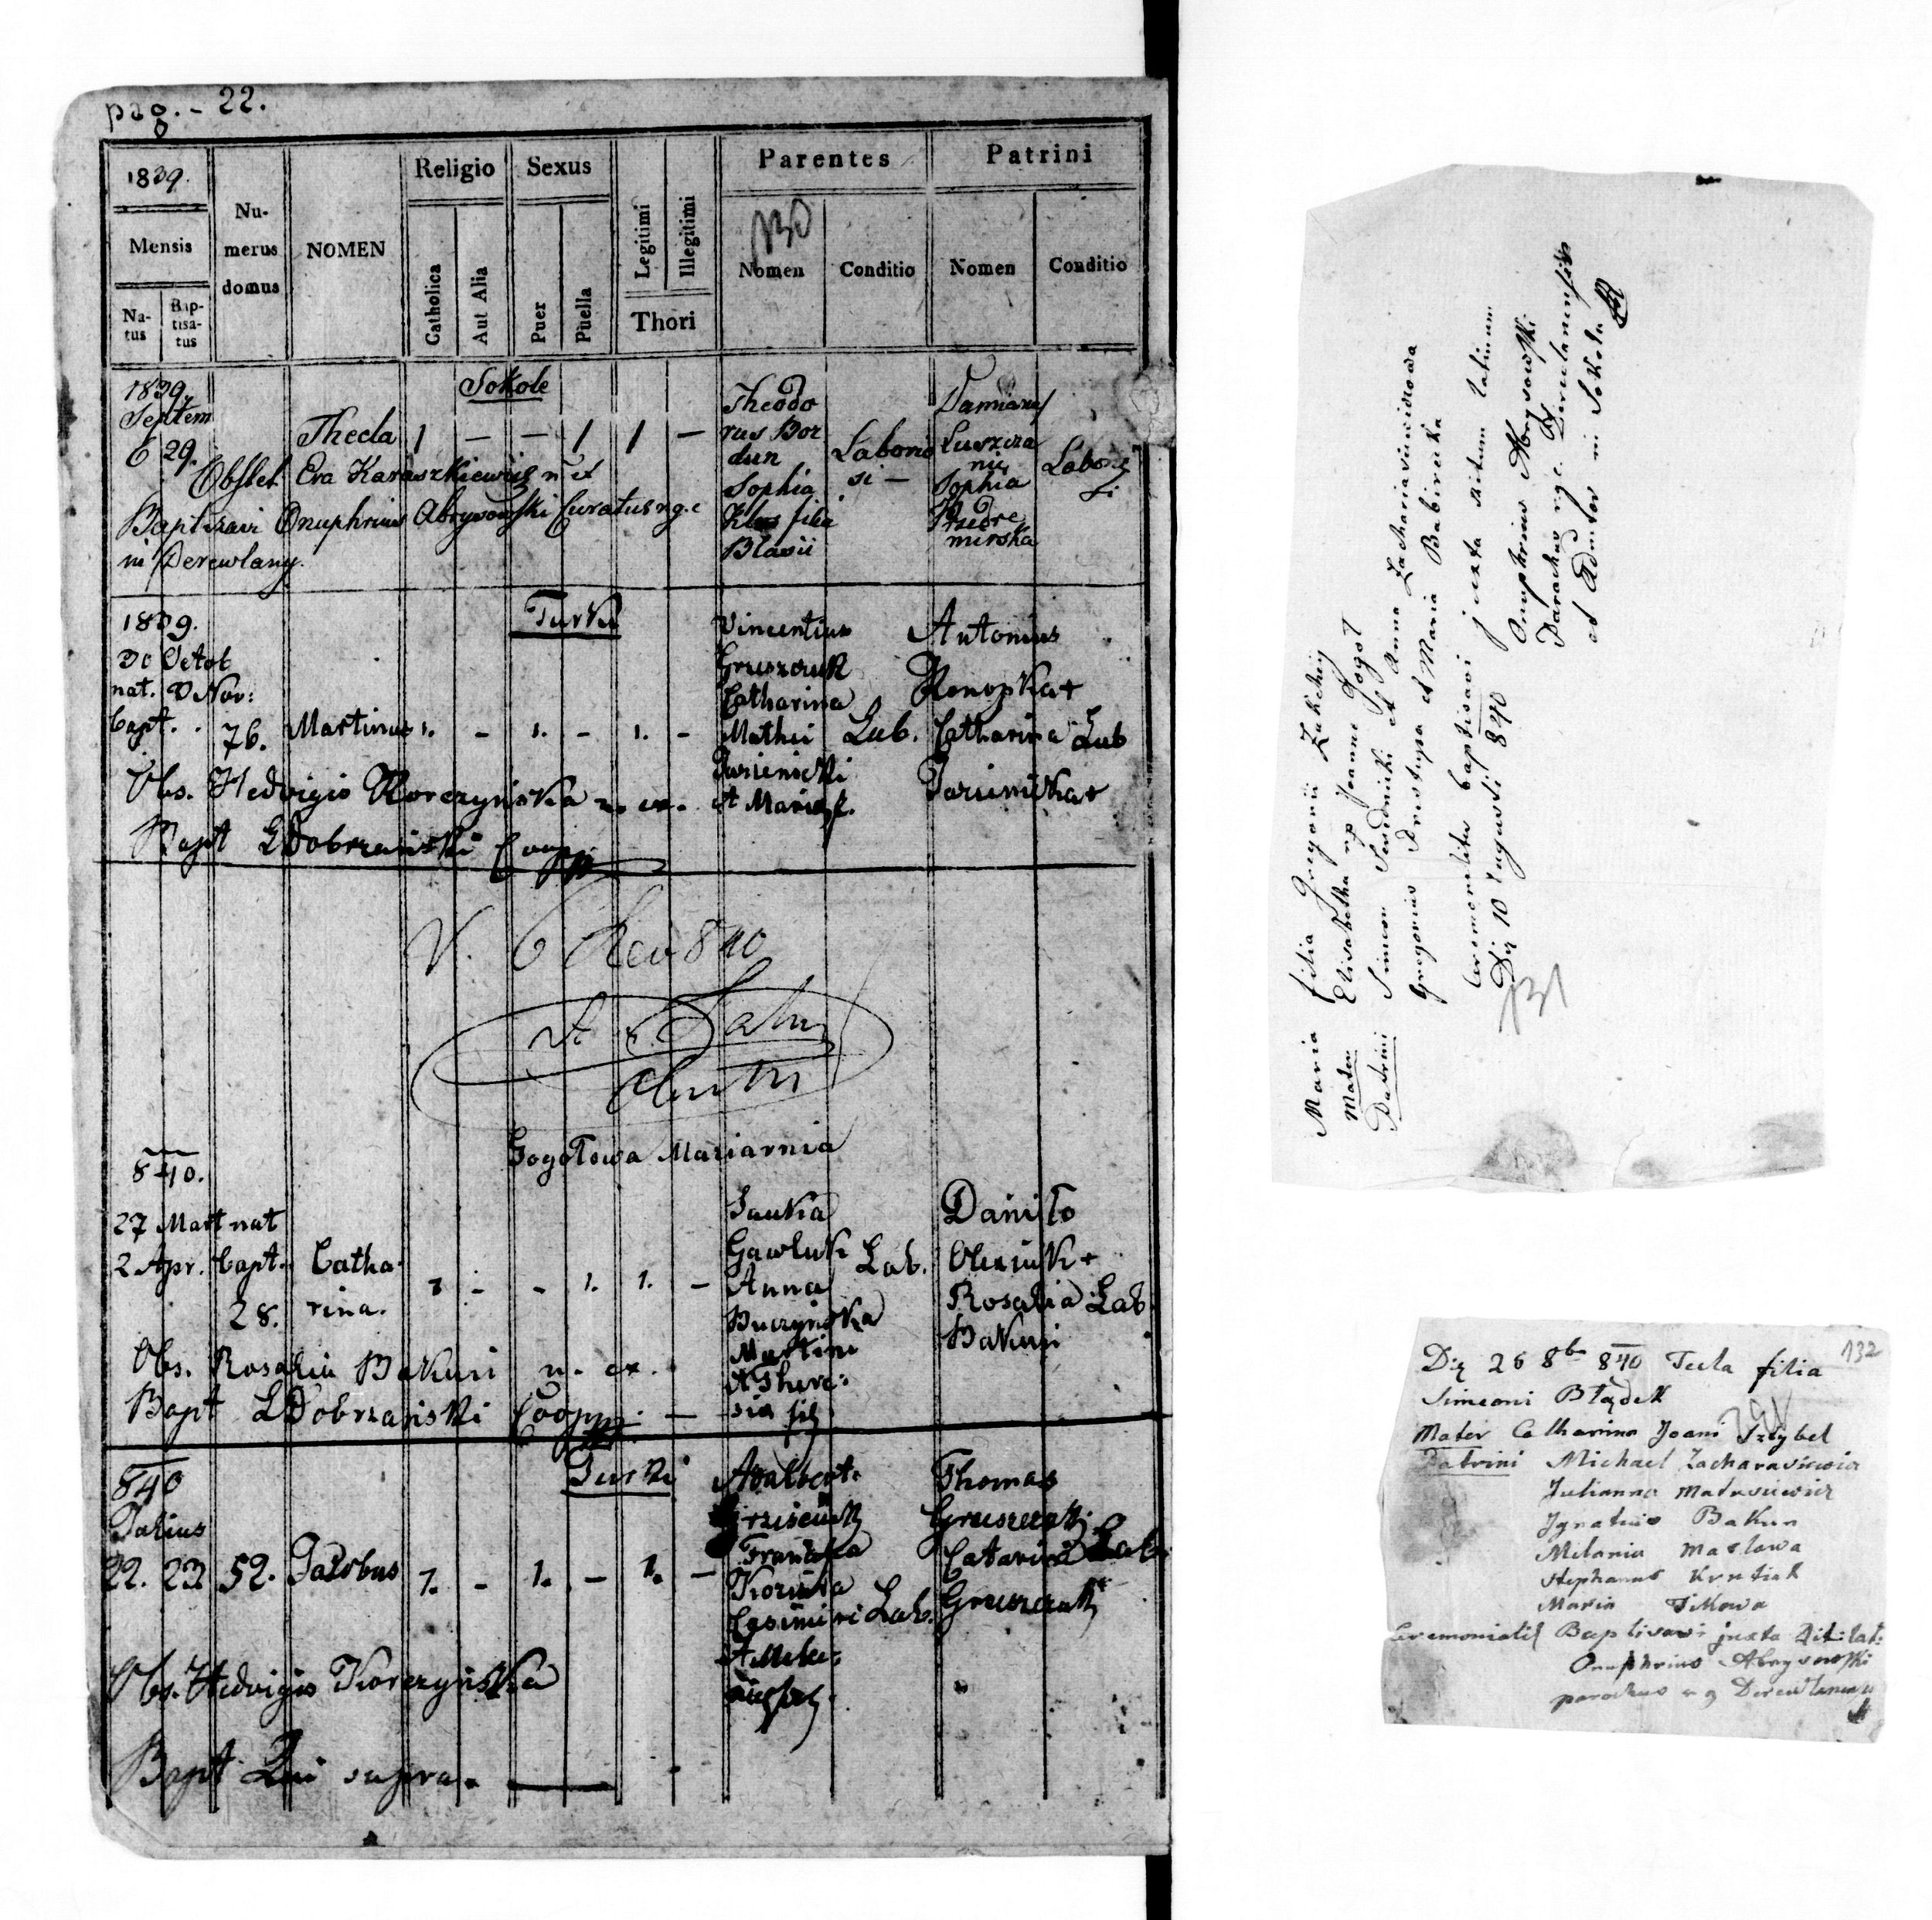 pag. - 22.
1839.
Mensis
Na-
tus
Bap-
tisa-
tus
Nu-
merus
domus
NOMEN
Religio
Catholica
Aut Alia
Sexus
Puer
Puella
Legitimi
Illegitimi
Thori
Parentes
130
Nomen
Conditio
Patrini
Nomen
Conditio
Sokole
1839.
Septem
6 29.
Thecla 1 — — 1 1 —
Theodo
rus Bor
dun
Sophia
filia
Blasii
Laborio
si —
Damianus
Luszcza
nic
Sophia
Przedre
mirska
Laborio
si
Obstet. Eva Karaszkiewicz n ex
Baptizavi Onuphrius Abrysowski Curatus r. g. c
in Derewlany.
Turki
1839.
30 Octob
nat. 3 Nov:
bapt. 76. Martinus 1. - 1. - 1. -
Vincentius
Gruszczuk
Catharina
Mathei
Jarienicki
et Maria f.
Lab.
Antonius
Konopka +
Catharina
Jarienicka +
Lab
Obs. Hedvigis Korczyńska n. ex.
Bapt LDobrzański Coopp
V. 6 840
Gogołowa Maziarnia
840.
27 Mart nat
2 Apr. bapt.
28. Catha-
rina. 1 - - 1. 1. -
Jaukia
Gawluk
Anna
Buczyńska
Martini
et There-
sia fil
Lab.
Daniło
Olexiuk +
Rosalia
Bakuri
Lab.
Obs. Rosalia Bakuri n. ex.
Bapt LDobrzański Coopp. —
Turki
840
Julius
22. 23 52. Jacobus 1. - 1. - 1. -
Adalbert.
Grzesiuk
Franciska
Koziuka
Casimiri
Lab.
Thomas
Gruszczak
Catarina
Gruszczak
Lab.
Obs. Hedvigis Korczyńska
Bapt Qui supra. —
Maria filia Gregorii Zukehij
Mater Elisabetha Joanne Gogoł
Patrini Simeon Serednicki et Anna Zachariasiewiczowa
Gregorius Pristupa et Maria Babirecka
Ceremonialiter baptisavi juxta Ritum latinum
Die 10 Augusti 840 Onuphrius Abrysowski
Parochus r. g. c. Derewlanensis
et Admstor in Sokola
131
132
Die 26 8br 840 Tecla filia
Simeoni Błądek
Mater Catharina Joani Szkybel
Patrini Michael Zacharasiewicz
Julianna Matusiewicz
Ignatius Bakun
Melania Masłowa
Stephanus Krutiak
Maria Titkowa
Ceremonialit Baptisavi juxta Rit: lat:
Onuphrius Abrysowski
parochus r g Derewlanensis